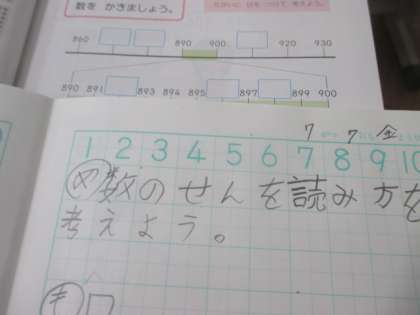 数を かきましょう。
860 890 900 920 930
890 891 893 894 895 897 899 900
7 7
1 2 3 4 5 6 7 8 9 10
め 数のせんを読み方を
考えよう。